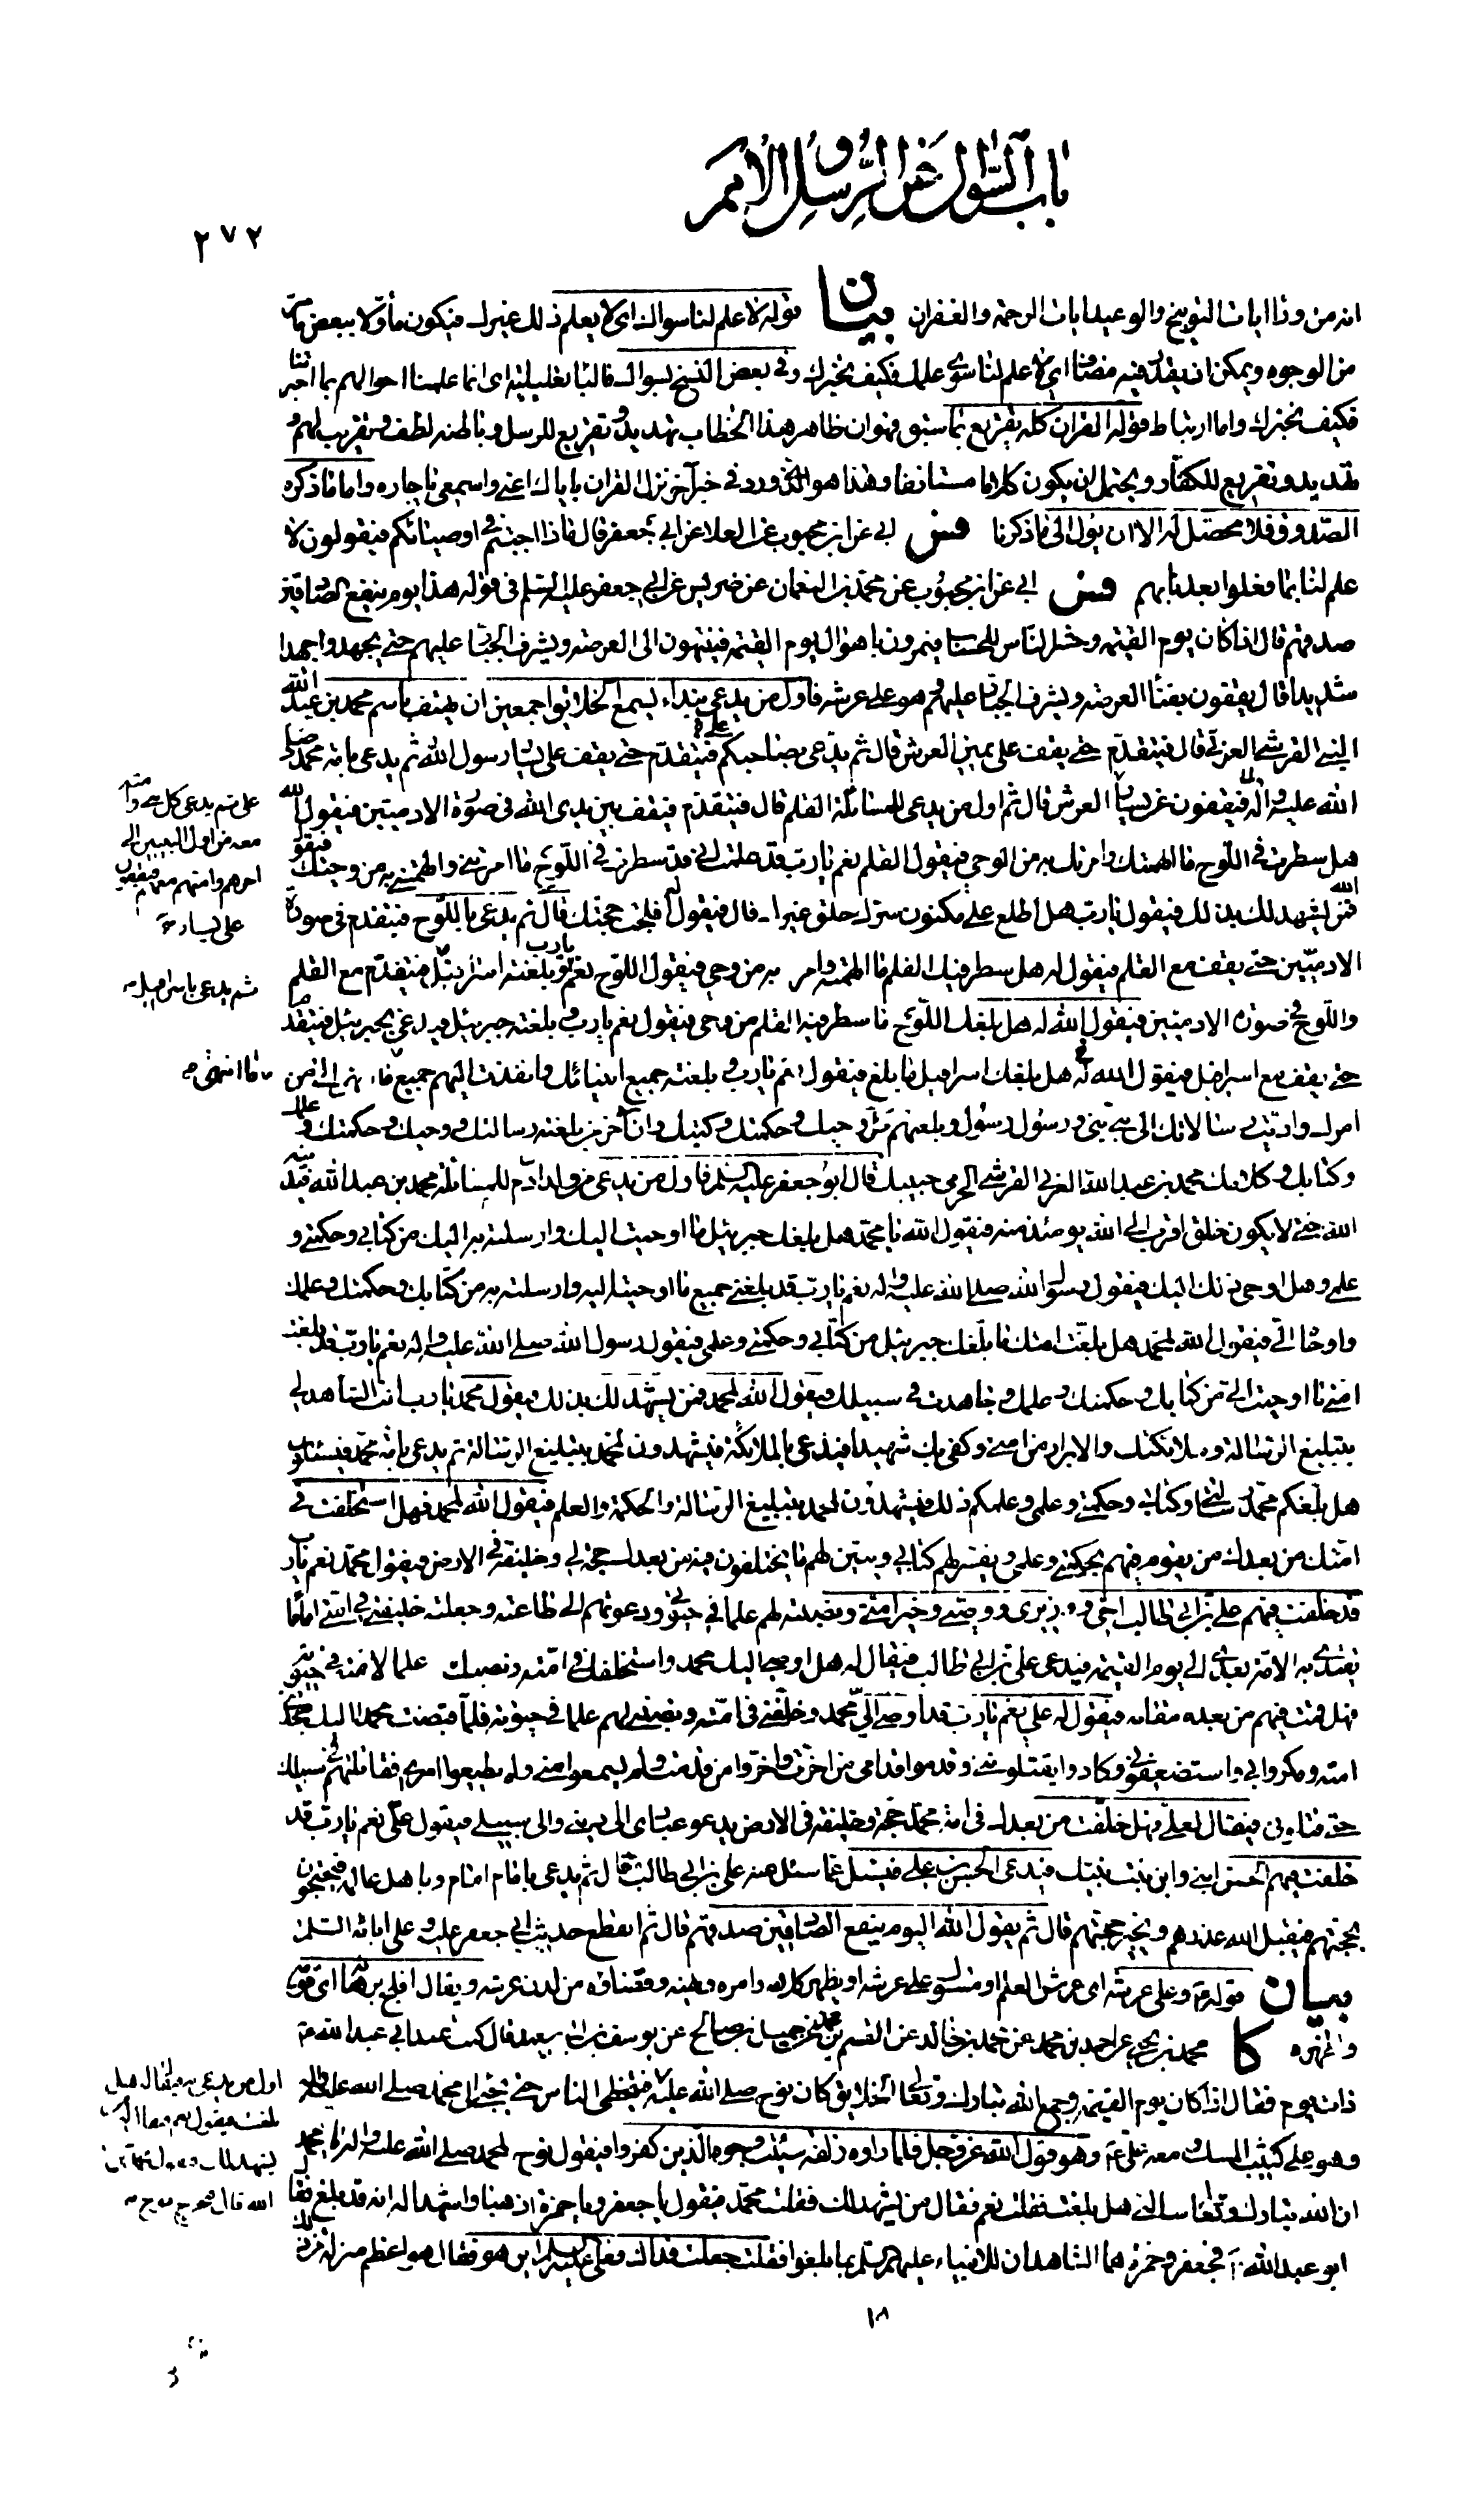 باب السؤال عن الرسل و الامم
٢٧٢
انه من وراء ايات التوبيخ والوعيد ايات الرحمة والغفران بيان قوله لا علم لنا سواك اي لا يعلم ذلك غيرك فيكون مأولا ببعض ما مر
من الوجوه ويمكن ان يقدر فيه مضاف اي لا علم لنا سوى علمك فكيف نخبرك وفي بعض النسخ بسواك فالباء تعليلية اي انما علمنا احوالهم بما اخبرتنا
فكيف نخبرك واما ارتباط قوله القران كله تقريع بما سبق فهو ان ظاهر هذا الخطاب تهديد وتقريع للرسل وباطنه لطف وتقريب لهم و
تهديد وتقريع للكفار ويحتمل ان يكون كلاما مستانفا وهذا هو الذي ورد في خبر آخر نزل القران باياك اعني واسمعي يا جاره واما ما ذكره
الصدوق فلا محصل له الا ان يؤل الى ما ذكرنا فس ابي عن ابن محبوب عن العلا عن ابي جعفر قال ماذا اجبتم في اوصيائكم فيقولون لا
علم لنا بما فعلوا بعدنا بهم فس ابي عن ابن محبوب عن محمد بن النعمان عن ضريس عن ابي جعفر عليه السلم في قوله هذا يوم ينفع الصادقين
صدقهم قال اذا كان يوم القيمة وحشر الناس للحساب فيمرون باهوال يوم القيمة فينتهون الى العرصة ويشرف الجبار عليهم حتى يجهدوا جهدا
شديدا قال يقفون بفناء العرصة ويشرف الجبار عليهم وهو على عرشه فاول من يدعى بنداء يسمع الخلائق اجمعين ان يهتف باسم محمد بن عبد الله
النبي القرشي العربي قال فيتقدم حتى يقف على يمين العرش قال ثم يدعى بصاحبكم علي ع فيتقدم حتى يقف على يسار رسول الله ثم يدعى بامة محمد صلى
الله عليه واله فيقفون عن يسار العرش قال ثم اول من يدعى للمسائلة القلم قال فيتقدم فيقف بين يدى الله في صورة الادميين فيقول الله
هل سطرت في اللوح ما الهمتك وامرتك به من الوحي فيقول القلم نعم يا رب قد علمت اني قد سطرت في اللوح ما امرتني والهمتني به من وحيك فيقول
الله فمن يشهد لك بذلك فيقول يا رب هل اطلع على مكنون سرك خلق غيرك قال فيقول له افلحت حجتك قال ثم يدعى باللوح فيتقدم في صورة
الادميين حتى يقف مع القلم فيقول له هل سطر فيك القلم ما الهمته وامرته به من وحي فيقول اللوح نعم يا رب وبلغته اسرافيل فيتقدم مع القلم
واللوح في صورة الادميين فيقول الله له هل بلغك اللوح ما سطر فيه القلم من وحي فيقول نعم يا رب وبلغته جبرئيل فيدعى بجبرئيل فيتقدم
حتى يقف مع اسرافيل فيقول الله له هل بلغك اسرافيل ما بلغ فيقول نعم يا رب وبلغته جميع انبيائك وانفذت اليهم جميع ما انتهى الي من
امرك واديت رسالاتك الى نبي نبي ورسول رسول وبلغتهم كل وحيك وحكمتك وكتبك وان آخر من بلغته رسالتك ووحيك وحكمتك وعلمك
وكتابك وكلامك محمد بن عبد الله العربي القرشي الحرمي حبيبك قال ابو جعفر عليه السلم فاول من يدعى من ولد ادم للمسائلة محمد بن عبد الله فيدنيه
الله حتى لا يكون خلق اقرب الى الله يومئذ منه فيقول الله يا محمد هل بلغك جبرئيل ما اوحيت اليك وارسلته به اليك من كتابي وحكمتي و
علمي وهل اوحى ذلك اليك فيقول رسول الله صلى الله عليه واله نعم يا رب قد بلغني جميع ما اوحيته اليه وارسلته به من كتابك وحكمتك وعلمك
واوحاه الي فيقول الله لمحمد هل بلغت امتك ما بلغك جبرئيل من كتابي وحكمتي وعلمي فيقول رسول الله صلى الله عليه واله نعم يا رب قد بلغت
امتي ما اوحيت الي من كتابك وحكمتك وعلمك وجاهدت في سبيلك فيقول الله لمحمد فمن يشهد لك بذلك فيقول محمد يا رب انت الشاهد لي
بتبليغ الرسالة وملائكتك والابرار من امتي وكفى بك شهيدا فيدعى بالملائكة فيشهدون لمحمد بتبليغ الرسالة ثم يدعى بامة محمد فيسئلون
هل بلغكم محمد رسالتي وكتابي وحكمتي وعلمي وعلمكم ذلك فيشهدون لمحمد بتبليغ الرسالة والحكمة والعلم فيقول الله لمحمد فهل استخلفت في
امتك من بعدك من يقوم فيهم بحكمتي وعلمي ويفسر لهم كتابي ويبين لهم ما يختلفون فيه من بعدك حجة لي وخليفة في الارض فيقول محمد نعم يا رب
قد خلفت فيهم علي بن ابي طالب اخي ووزيري ووصيي وخير امتي ونصبته لهم علما في حيوتي ودعوتهم الى طاعته وجعلته خليفتي في امتي اماما
يقتدي به الامة بعدي الى يوم القيمة فيدعى علي بن ابي طالب فيقال له هل اوصى اليك محمد واستخلفك في امته ونصبك علما لامته في حيوته
فهل قمت فيهم من بعده مقامه فيقول له علي نعم يا رب قد اوصى الي محمد وخلفني في امته ونصبني لهم علما في حيوته فلما قبضت محمدا اليك جحدتني
امته ومكروا بي واستضعفوني وكادوا يقتلونني وقدموا قدامي من اخرت واخروا من قدمت ولم يسمعوا مني ولم يطيعوا امري فقاتلتهم في سبيلك
حتى قتلوني فيقال لعلي فهل خلفت من بعدك في امة محمد حجة وخليفة في الارض يدعو عبادي الى ديني والى سبيلي فيقول علي نعم يا رب قد
خلفت فيهم الحسن ابني وابن بنت نبيك فيدعى الحسن بن علي فيسئل عما سئل عنه علي بن ابي طالب قال ثم يدعى بامام امام وباهل عالمه فيحتجون
بحجتهم فيقبل الله عذرهم ويجيز حجتهم قال ثم يقول الله اليوم ينفع الصادقين صدقهم قال ثم انقطع حديث ابي جعفر عليه وعلى ابائه السلم
بيان قوله ع وهو على عرشه اي عرش العلم او مستول على عرشه او يظهر كلامه وامره ونهيه وقضاؤه من لدن عرشه ويقال افلج برهانه اي قومه
واظهره كا محمد بن يحيى عن احمد بن محمد عن محمد بن خالد عن القسم بن محمد عن جميل بن صالح عن يوسف بن ابي سعيد قال كنت عند ابي عبد الله ع
ذات يوم فقال اذا كان يوم القيمة وجمع الله تبارك وتعالى الخلائق كان نوح صلى الله عليه فيتخطى الناس حتى يجيئ الى محمد صلى الله عليه واله
وهو على كثيب المسك ومعه علي ع وهو قول الله عز وجل فلما راوه زلفة سيئت وجوه الذين كفروا فيقول نوح لمحمد صلى الله عليه واله يا محمد
ان الله تبارك وتعالى سالني هل بلغت فقلت نعم فقال من يشهد لك فقلت محمد فيقول يا جعفر ويا حمزة اذهبا واشهدا له انه قد بلغ فقال
ابو عبد الله ع فجعفر وحمزة هما الشاهدان للانبياء عليهم السلم بما بلغوا فقلت جعلت فداك فعلي عليه السلم اين هو فقال هو اعظم منزلة من ذلك
على ثم يدعى كل نبي وامته
معه من اول النبيين الى
اخرهم وامتهم معهم فيقفون
على يسار
ثم يدعى باسرافيل
ما انتهى
اول من يدعى به فيقال هل
بلغت فيقول نعم فيقال له من
يشهد لك فيقول محمد بن
عبد الله قال فيخرج نوح
١٨